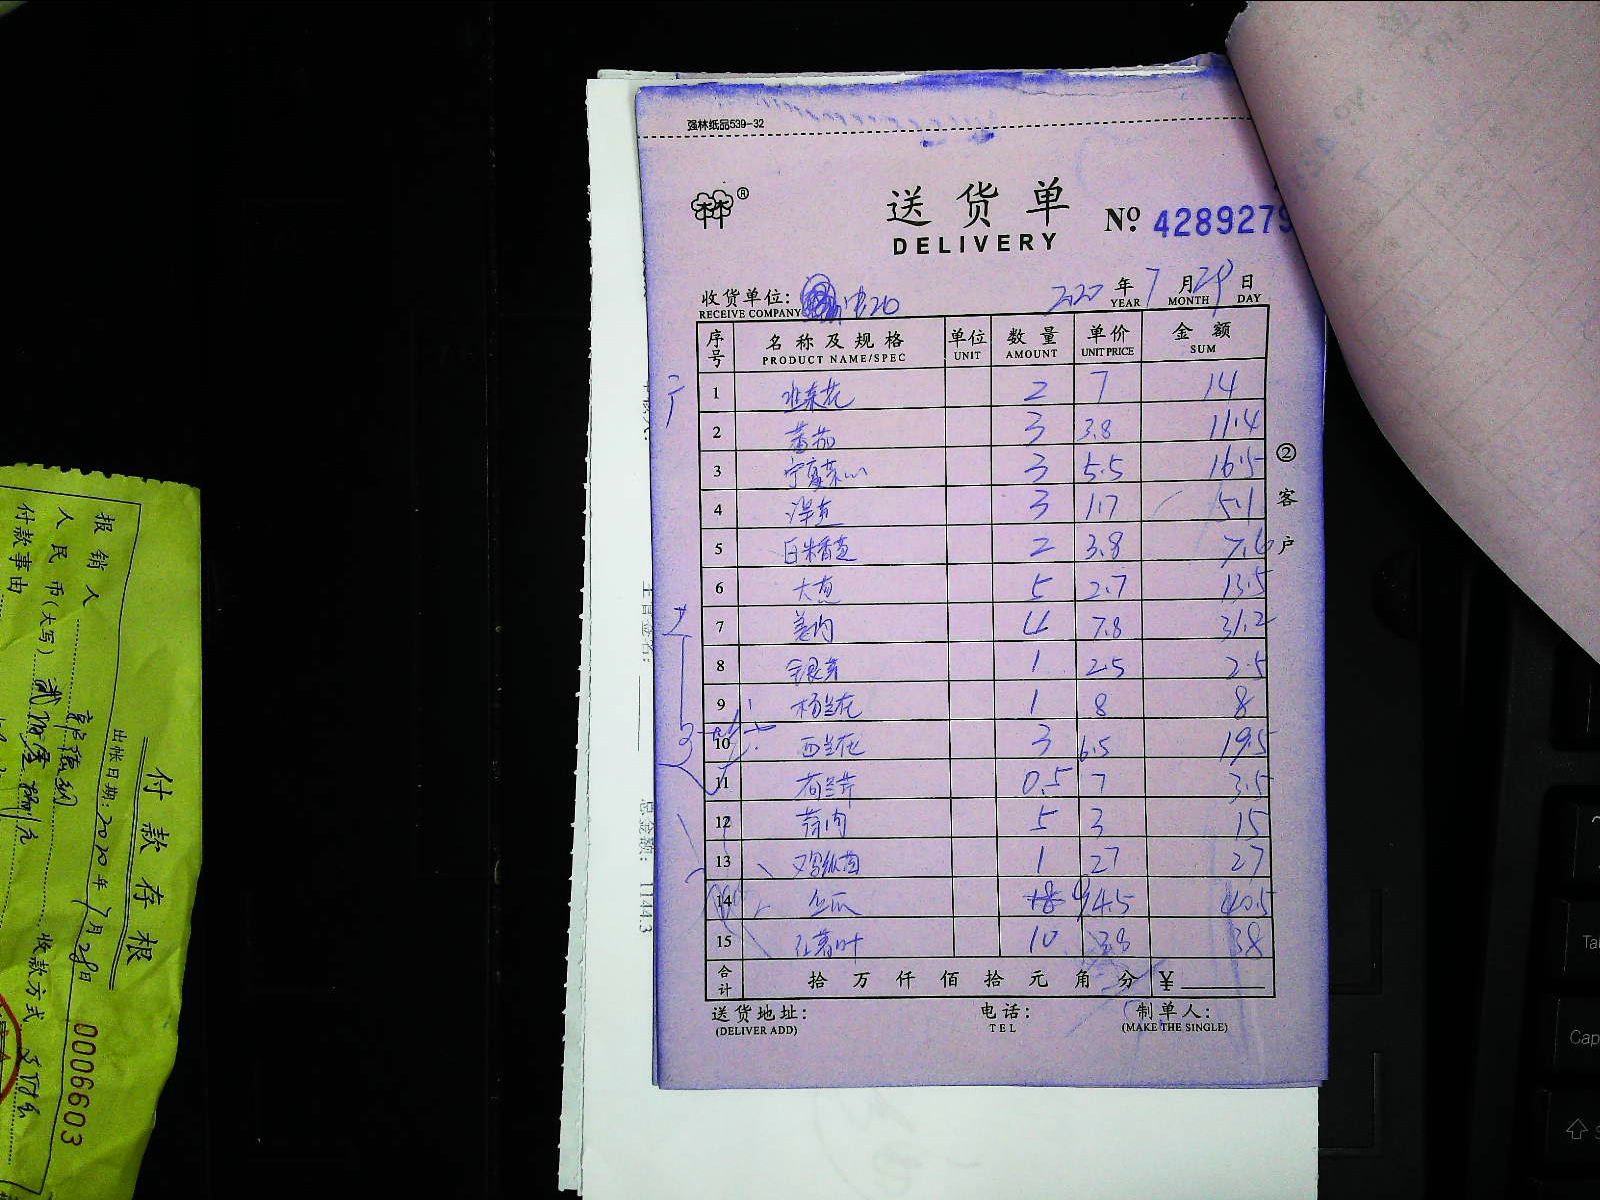 强林纸品539-32
送货单
DELIVERY
№: 4289279
收货单位: 2020年7月29日
RECEIVE COMPANY YEAR MONTH DAY
序号 名称及规格 单位 数量 单价 金额
PRODUCT NAME/SPEC UNIT AMOUNT UNIT PRICE SUM
1 2 7 14
2 蕃茄 3 3.8 11.4
3 宁夏菜心 3 5.5 16.5
4 3 1.7 5.1
5 2 3.8 7.6
6 大葱 5 2.7 13.5
7 姜肉 4 7.8 31.2
8 银芽 1 2.5 2.5
9 杨兰花 1 8 8
10 西兰花 3 6.5 19.5
11 荷兰芹 0.5 7 3.5
12 蒜肉 5 3 15
13 1 27 27
14 9 4.5 40.5
15 红薯叶 10 3.8 38
合计 拾万仟佰拾元角分 ¥
送货地址: 电话: 制单人:
(DELIVER ADD) TEL (MAKE THE SINGLE)
②客户
总金额: 1144.3
付款存根
出帐日期: 2020年7月28日
0006603
报销人
人民币(大写)
付款事由
收款方式